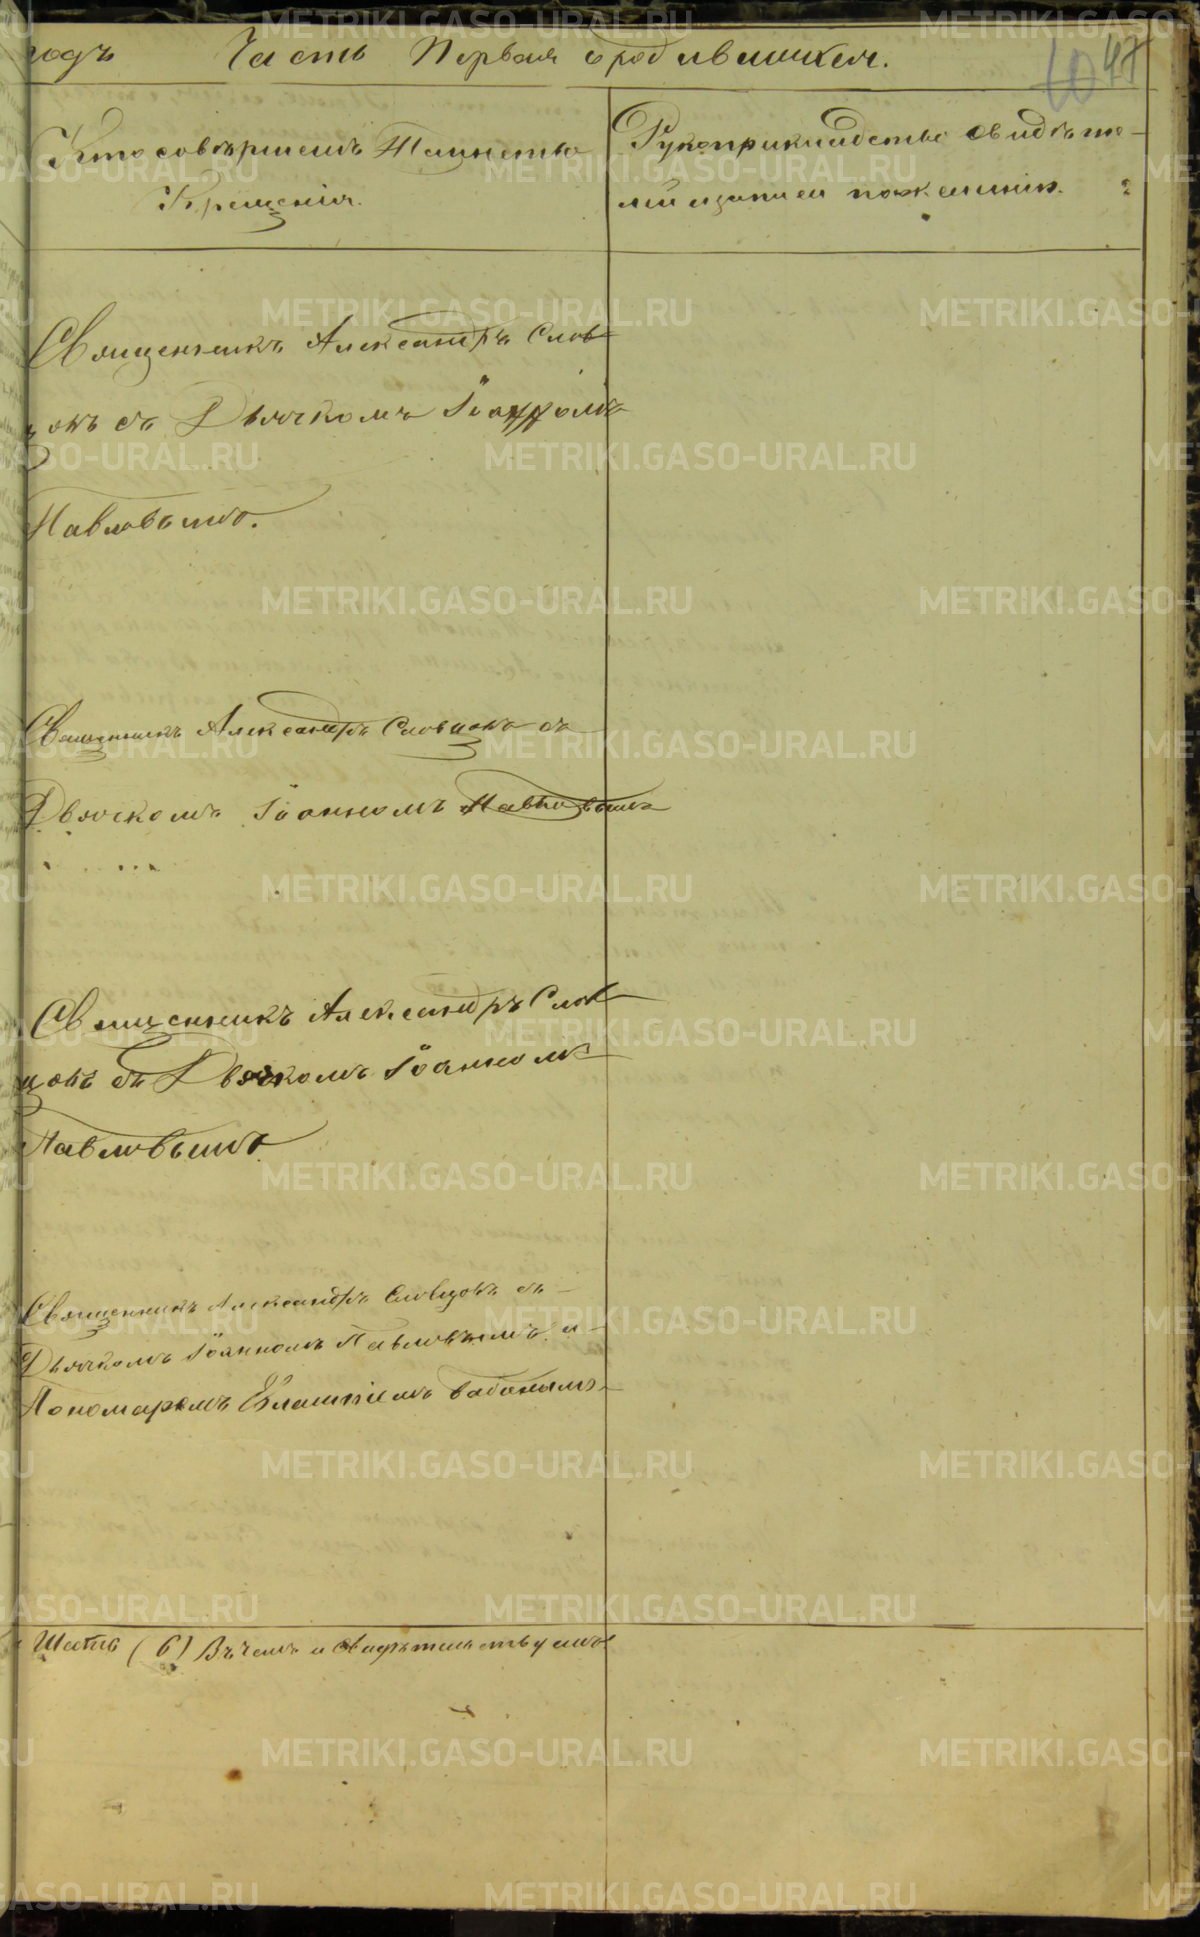 годъ Часть Первая о родившихся.
60 47
Кто совершалъ Таинство
Крещенія.
Рукоприкладство свидѣте-
лей записи по желанію.
Священникъ Александръ Слов
цовъ съ Дьячкомъ Іоанномъ
Павловымъ.
Священникъ Александръ Словцовъ съ
Дьячкомъ Іоанномъ Павловымъ
Священникъ Александръ Слов
цовъ съ Дьячкомъ Іоанномъ
Павловымъ
Священникъ Александръ Словцовъ съ
Дьячкомъ Іоанномъ Павловымъ и
Пономаремъ
Шесть (6) Въ чемъ и свидѣтельствуемъ
METRIKI.GASO-URAL.RU